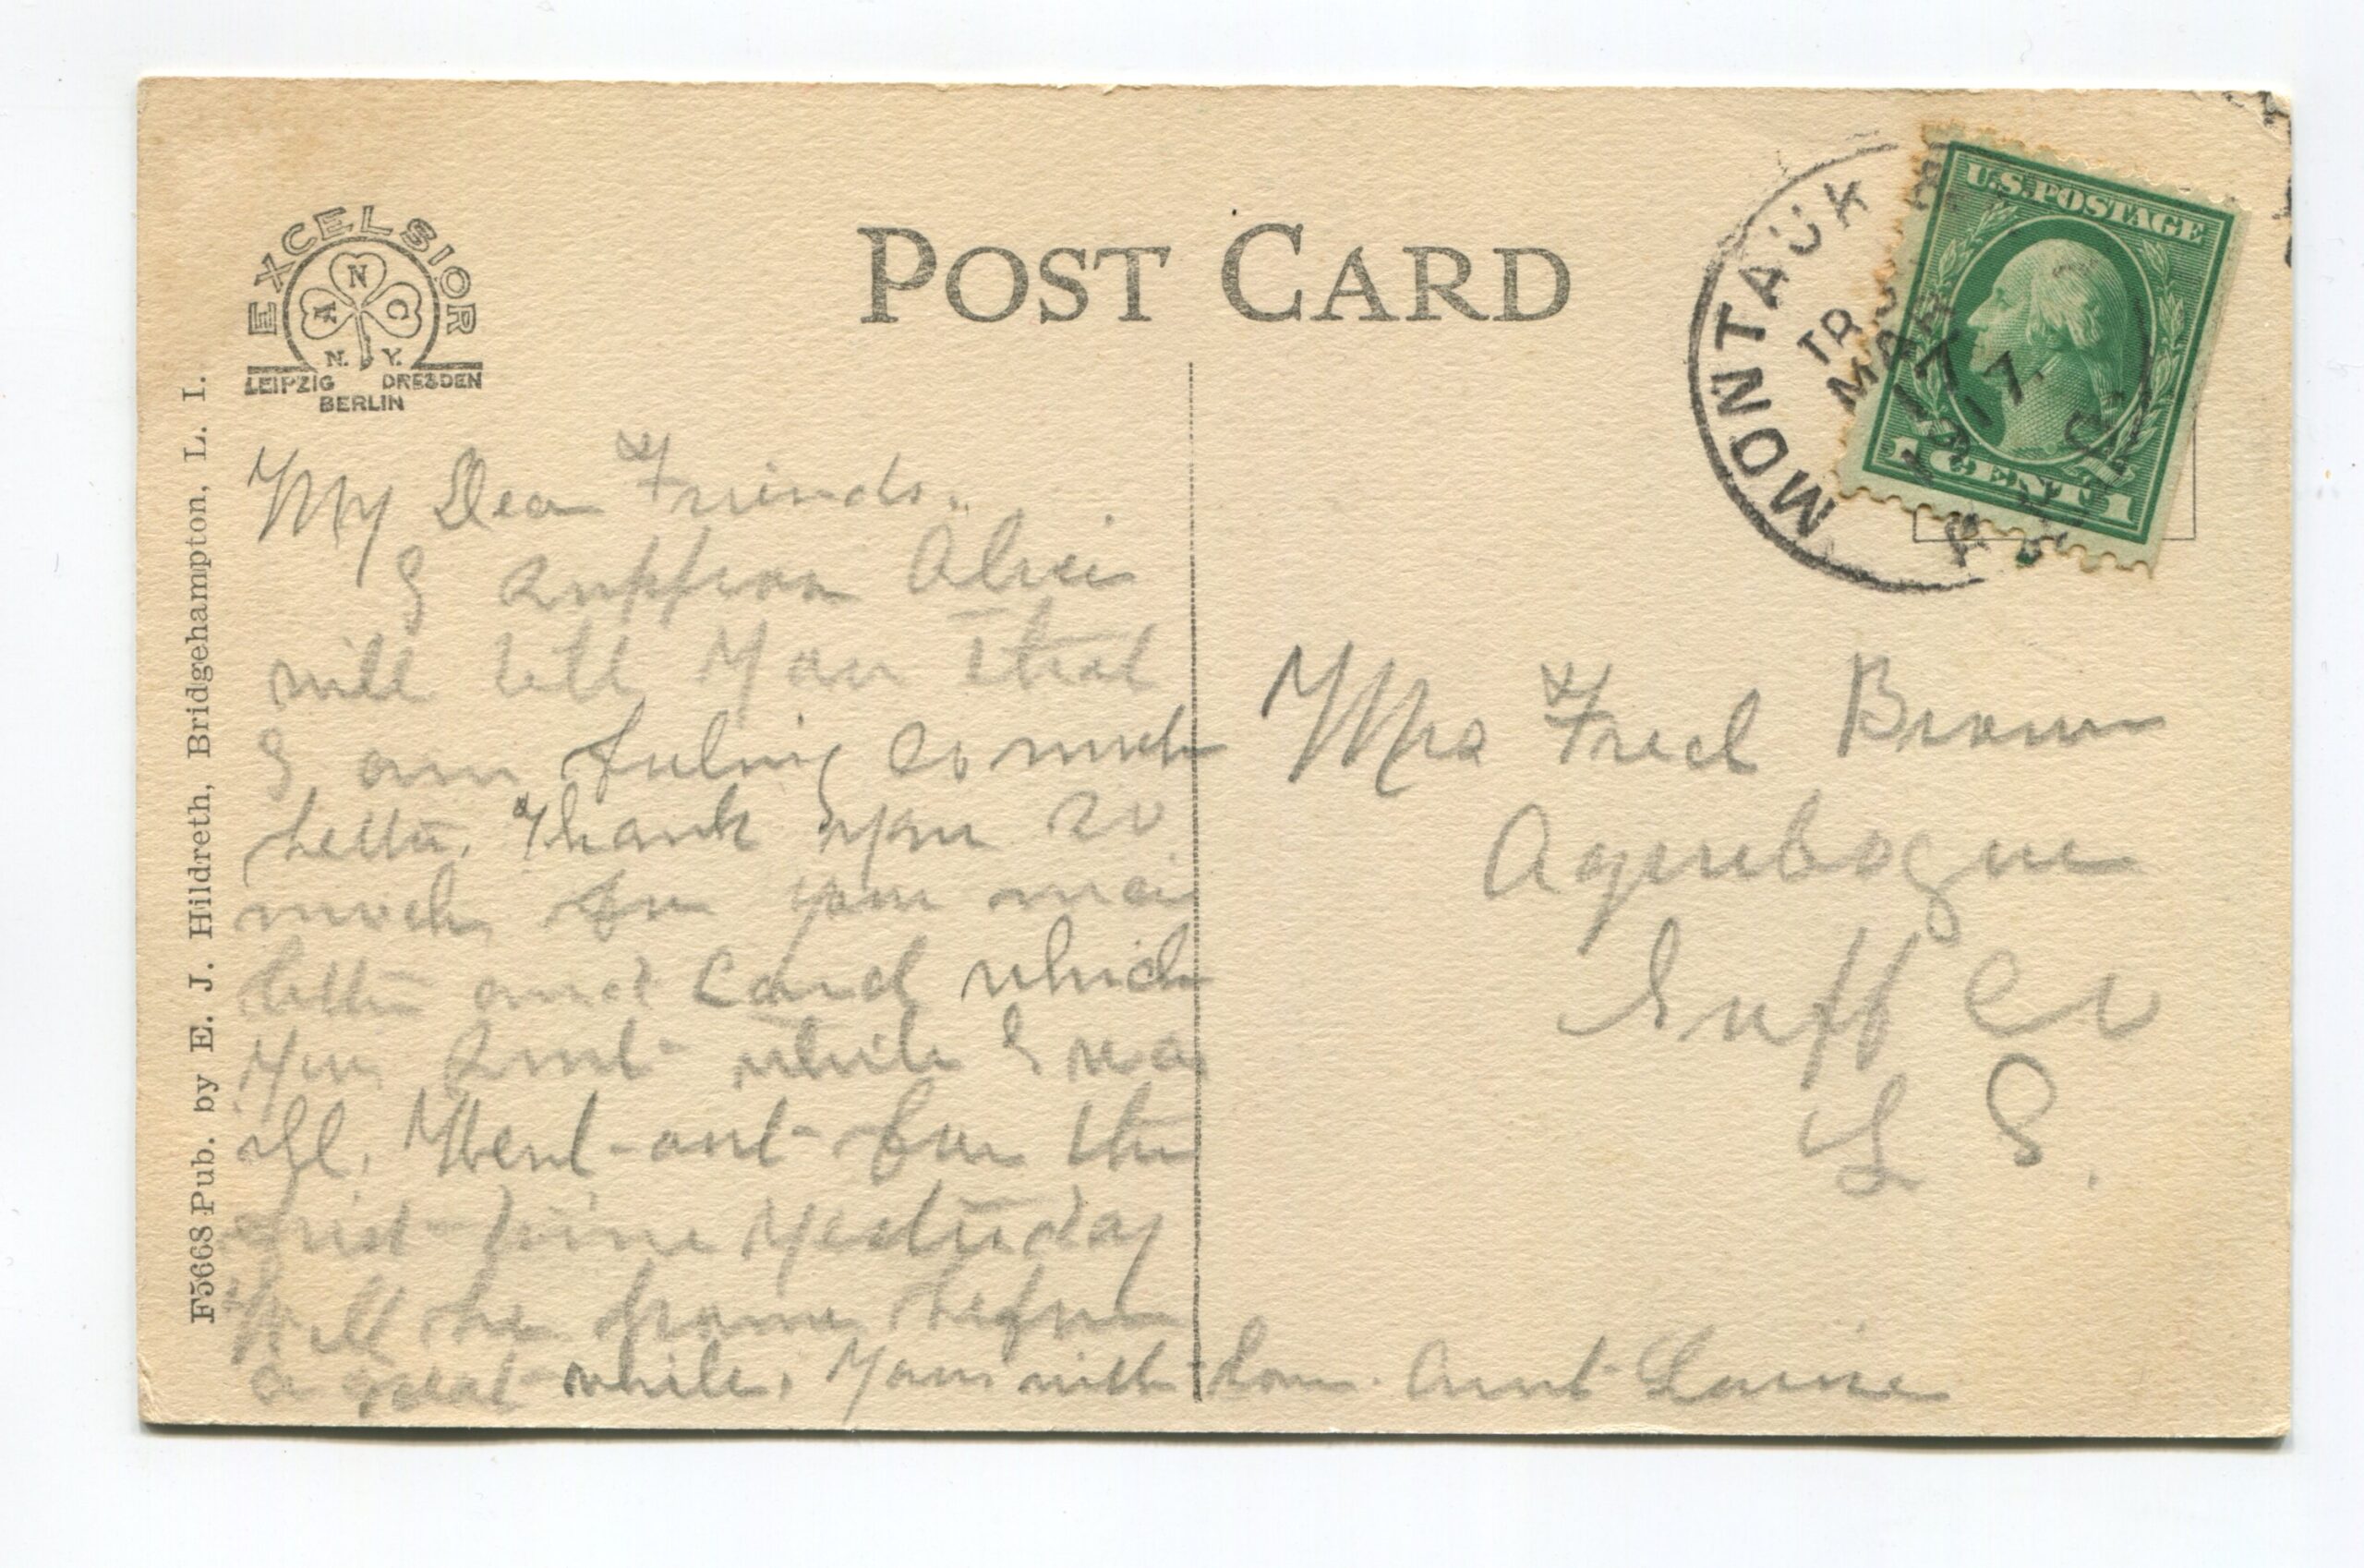 EXCELSIOR
A N C
N. Y.
LEIPZIG DRESDEN
BERLIN
POST CARD
U.S. POSTAGE
1 CENT 1
MONTAUK
TR
MAR
17
17.
R.P.O.
F5668 Pub. by E. J. Hildreth, Bridgehampton, L. I.
My Dear Friends.
I suppose Alice
will tell you that
I am feeling so much
better. Thank you so
much for your nice
letter and card which
you sent while I was
ill. Went out for the
first time yesterday
Will be home before
a great while. Yours with Love. Aunt Louise
Mrs Fred Brown
Aquebogue
Suff Co
L I.